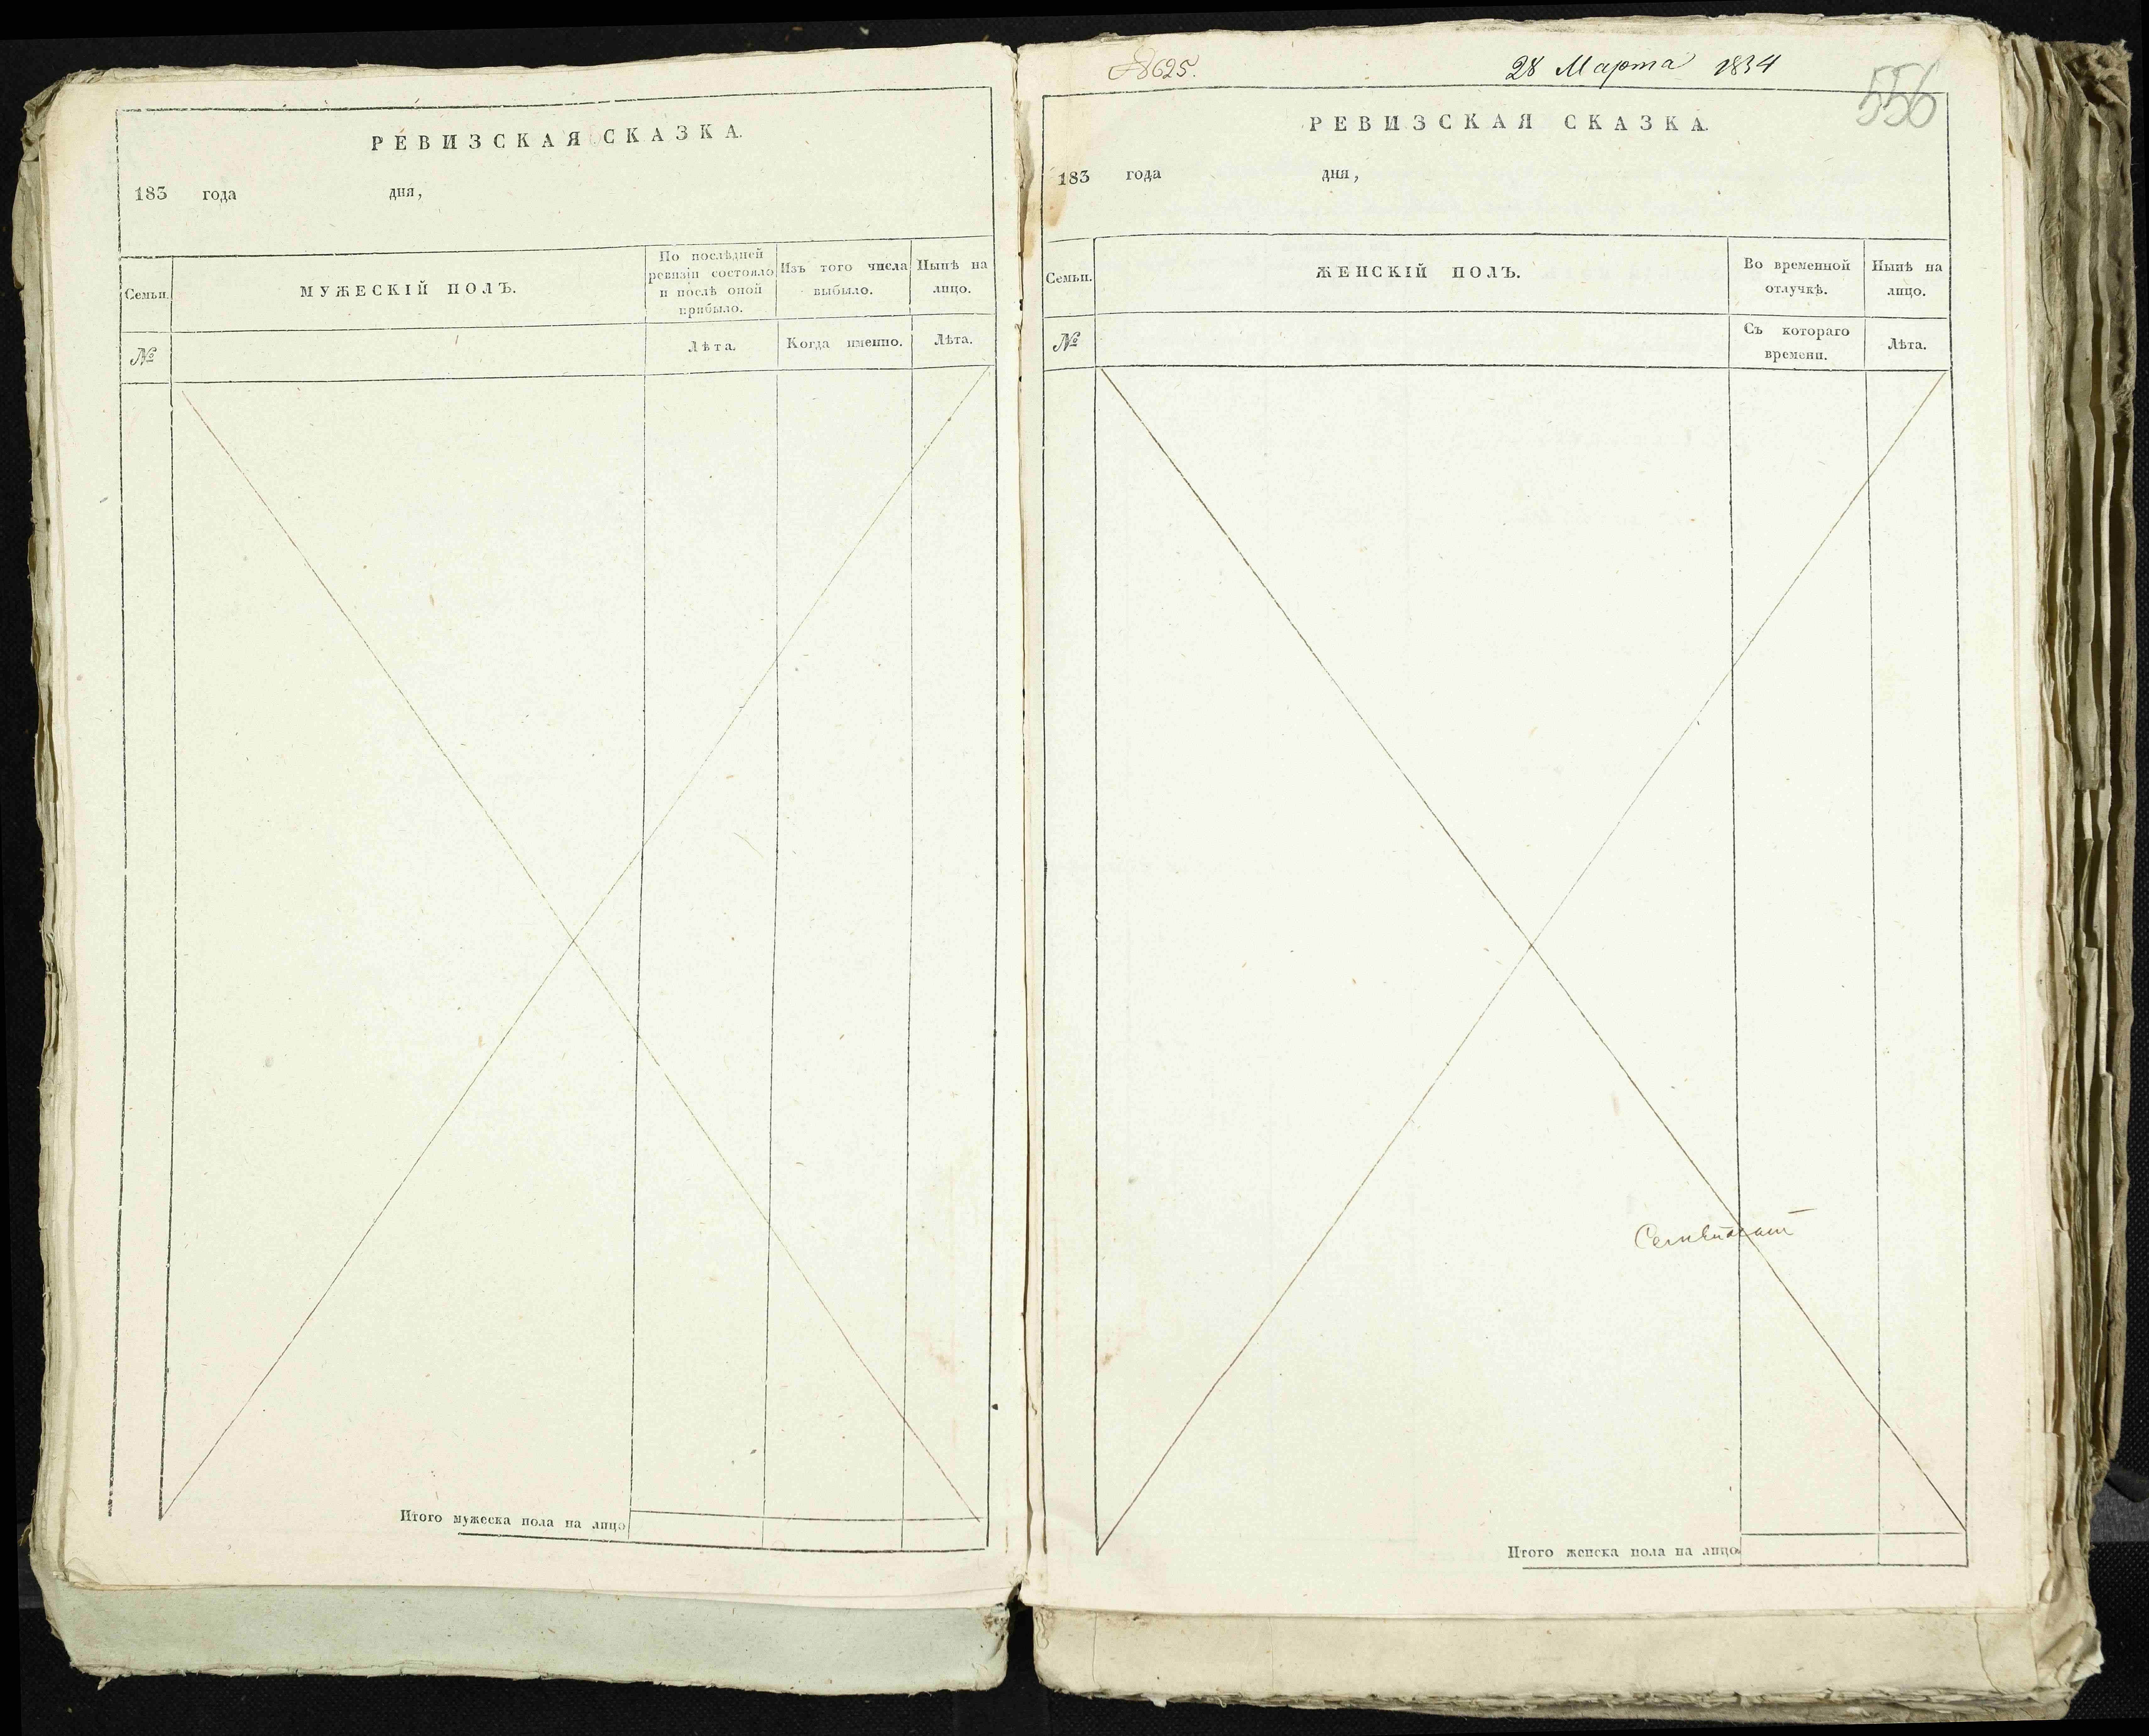 РЕВИЗСКАЯ СКАЗКА.
183 года дня,
Семьи.
МУЖЕСКІЙ ПОЛЪ.
По послѣдней ревизіи состояло и послѣ оной прибыло.
Изъ того числа выбыло.
Нынѣ на лицо.
№
Лѣта.
Когда именно.
Лѣта.
Итого мужеска пола на лицо
8625.
28 Марта 1834
556
РЕВИЗСКАЯ СКАЗКА.
183 года дня,
Семьи.
ЖЕНСКІЙ ПОЛЪ.
Во временной отлучкѣ.
Нынѣ на лицо.
№
Съ котораго времени.
Лѣта.
Итого женска пола на лицо